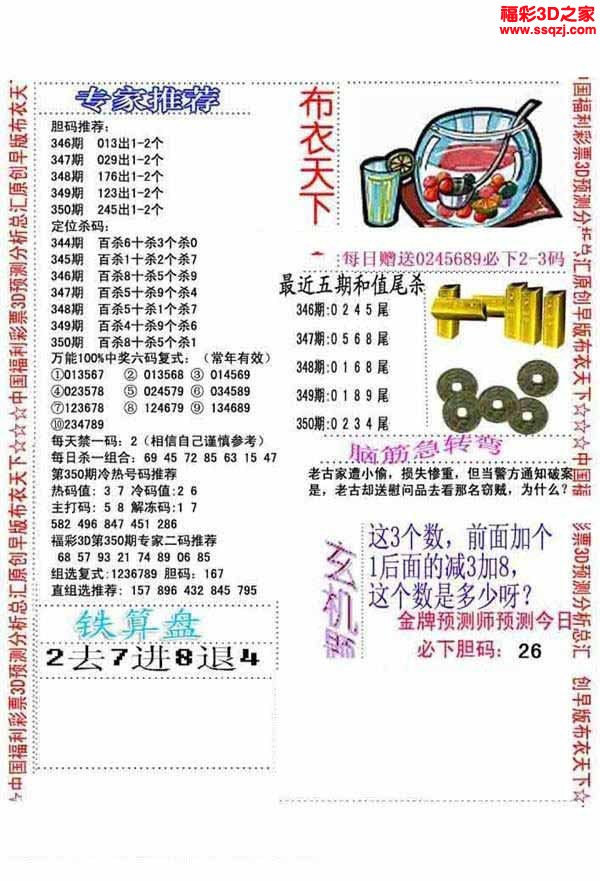 福彩3D之家
www.ssqzj.com
专家推荐
胆码推荐:
346期 013出1-2个
347期 029出1-2个
348期 176出1-2个
349期 123出1-2个
350期 245出1-2个
定位杀码:
344期 百杀6十杀3个杀0
345期 百杀1十杀2个杀7
346期 百杀8十杀5个杀9
347期 百杀5十杀9个杀4
348期 百杀5十杀1个杀7
349期 百杀4十杀9个杀6
350期 百杀8十杀5个杀1
万能100%中奖六码复式:（常年有效）
①013567 ② 013568 ③ 014569
④023578 ⑤ 024579 ⑥ 034589
⑦123678 ⑧ 124679 ⑨ 134689
⑩234789
每天禁一码: 2（相信自己谨慎参考）
每日杀一组合: 69 45 72 85 63 15 47
第350期冷热号码推荐
热码值: 3 7 冷码值:2 6
主打码: 5 8 解冻码:1 7
582 496 847 451 286
福彩3D第350期专家二码推荐
68 57 93 21 74 89 06 85
组选复式:1236789 胆码: 167
直组选推荐: 157 896 432 845 795
铁算盘
2去7进8退4
布衣天下
:每日赠送0245689必下2-3码
最近五期和值尾杀
346期:0 2 4 5 尾
347期:0 5 6 8 尾
348期:0 1 6 8 尾
349期:0 1 8 9 尾
350期:0 2 3 4 尾
脑筋急转弯
老古家遭小偷，损失惨重，但当警方通知破案
是，老古却送慰问品去看那名窃贼，为什么?
玄机
这3个数，前面加个
1后面的减3加8，
这个数是多少呀?
金牌预测师预测今日
必下胆码: 26
☆中国福利彩票3D预测分析总汇原创早版布衣天下☆☆☆中国福利彩票3D预测分析总汇原创早版布衣天
国福利彩票3D预测分析总汇原创早版布衣天下☆☆☆中国福
彩票3D预测分析总汇 创早版布衣天下☆